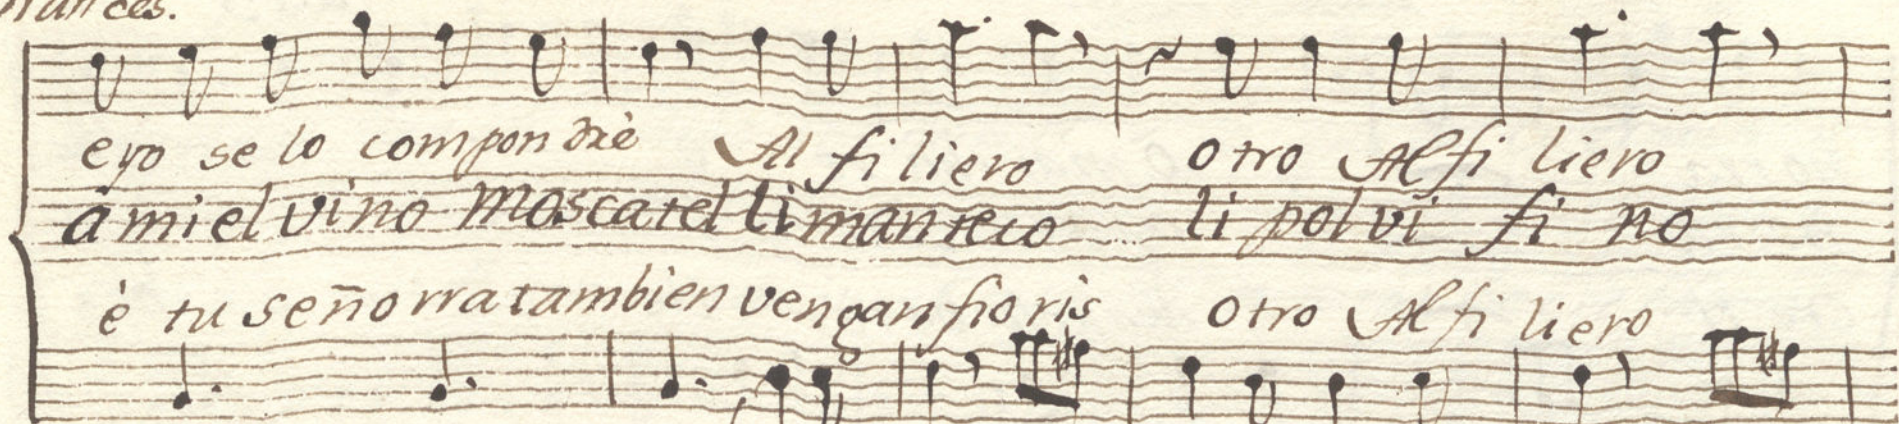 eyo se lo compondrè Al filiero otro Alfi liero
a mi el vino moscatel li manteco li polvi fi no
è tu señorra tambien vengan fioris otro Alfi liero